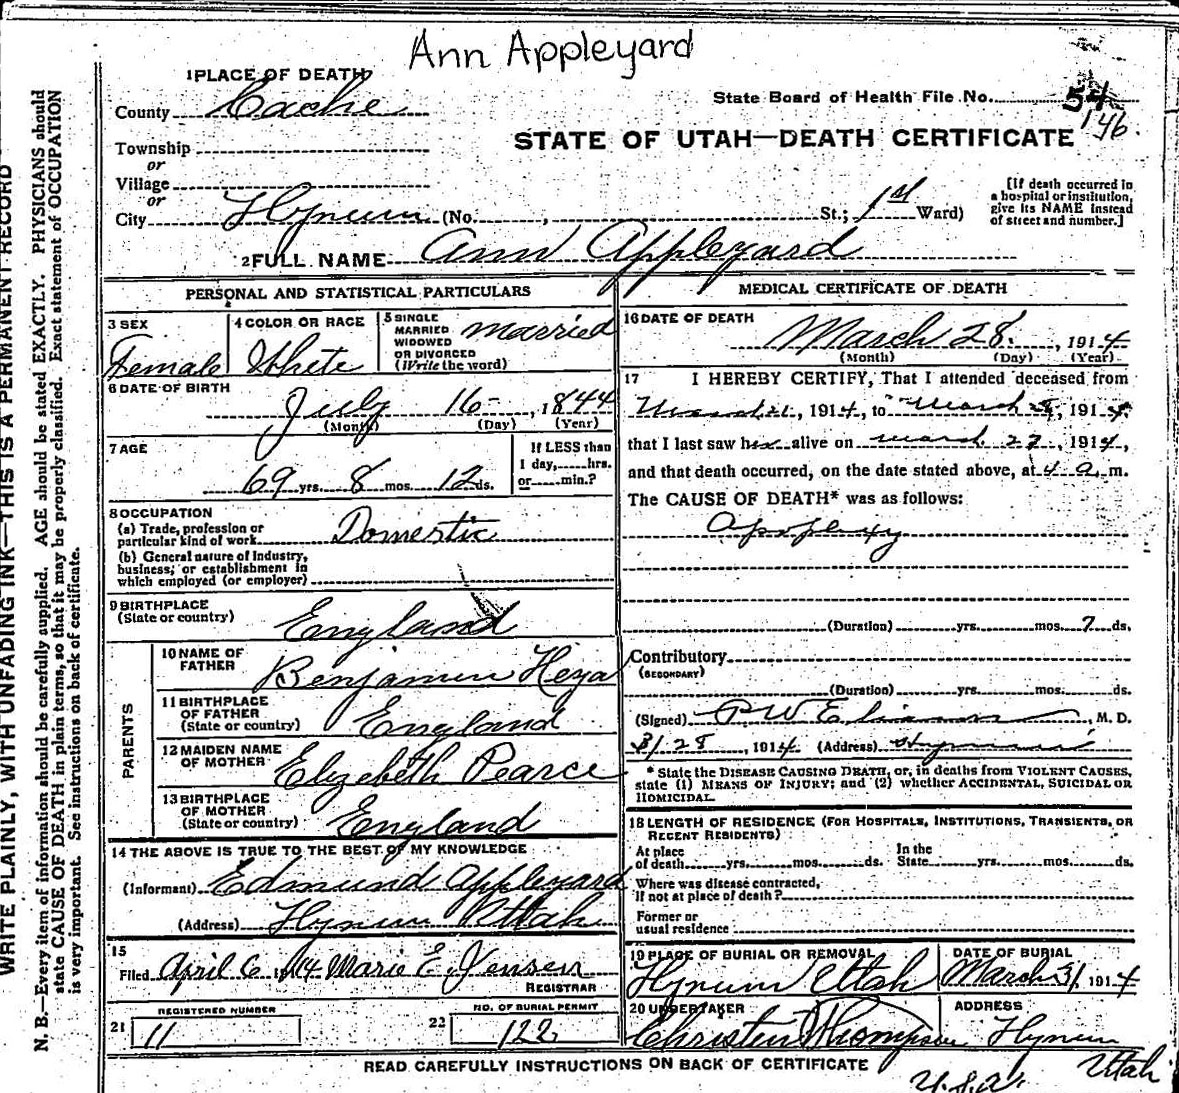 Ann Appleyard
1 PLACE OF DEATH
County Cache
State Board of Health File No. 54
146.
STATE OF UTAH—DEATH CERTIFICATE
Township
or
Village
or
City Hyrum (No. , St.; 1st Ward)
[If death occurred in
a hospital or institution,
give its NAME instead
of street and number.]
2 FULL NAME Ann Appleyard
PERSONAL AND STATISTICAL PARTICULARS
3 SEX
Female
4 COLOR OR RACE
White
5 SINGLE
MARRIED
WIDOWED
OR DIVORCED
(Write the word)
Married
6 DATE OF BIRTH
July 16- , 1844
(Month) (Day) (Year)
7 AGE
69 yrs. 8 mos. 12 ds.
If LESS than
1 day, hrs.
or min.?
8 OCCUPATION
(a) Trade, profession or
particular kind of work Domestic
(b) General nature of Industry,
business, or establishment in
which employed (or employer)
9 BIRTHPLACE
(State or country) England
PARENTS
10 NAME OF
FATHER Benjamin
11 BIRTHPLACE
OF FATHER
(State or country) England
12 MAIDEN NAME
OF MOTHER Elizebeth Pearce
13 BIRTHPLACE
OF MOTHER
(State or country) England
14 THE ABOVE IS TRUE TO THE BEST OF MY KNOWLEDGE
(Informant) Edmund Appleyard
(Address) Hyrum Utah
15
Filed April 6 1914 Marie E. Jensen
REGISTRAR
REGISTERED NUMBER
21 11
NO. OF BURIAL PERMIT
22 122
MEDICAL CERTIFICATE OF DEATH
16 DATE OF DEATH
March 28. , 1914
(Month) (Day) (Year)
17 I HEREBY CERTIFY, That I attended deceased from
March 21, 1914, to March 28, 1914
that I last saw her alive on March 27, 1914,
and that death occurred, on the date stated above, at 4 a. m.
The CAUSE OF DEATH* was as follows:
Apoplexy
(Duration) yrs. mos. 7 ds.
Contributory
(SECONDARY)
(Duration) yrs. mos. ds.
(Signed) P W , M. D.
3/28, 1914 (Address) Hyrum
* State the DISEASE CAUSING DEATH, or, in deaths from VIOLENT CAUSES,
state (1) MEANS OF INJURY; and (2) whether ACCIDENTAL, SUICIDAL OR
HOMICIDAL.
18 LENGTH OF RESIDENCE (FOR HOSPITALS, INSTITUTIONS, TRANSIENTS, OR
RECENT RESIDENTS)
At place
of death yrs. mos. ds.
In the
State yrs. mos. ds.
Where was disease contracted,
if not at place of death?
Former or
usual residence
19 PLACE OF BURIAL OR REMOVAL
Hyrum Utah
DATE OF BURIAL
March 31 1914
20 UNDERTAKER
Christen Thompson
ADDRESS
Hyrum
Utah
READ CAREFULLY INSTRUCTIONS ON BACK OF CERTIFICATE
U.S.A.
WRITE PLAINLY, WITH UNFADING INK—THIS IS A PERMANENT RECORD
N. B.—Every item of information should be carefully supplied. AGE should be stated EXACTLY. PHYSICIANS should
state CAUSE OF DEATH in plain terms, so that it may be properly classified. Exact statement of OCCUPATION
is very important. See instructions on back of certificate.